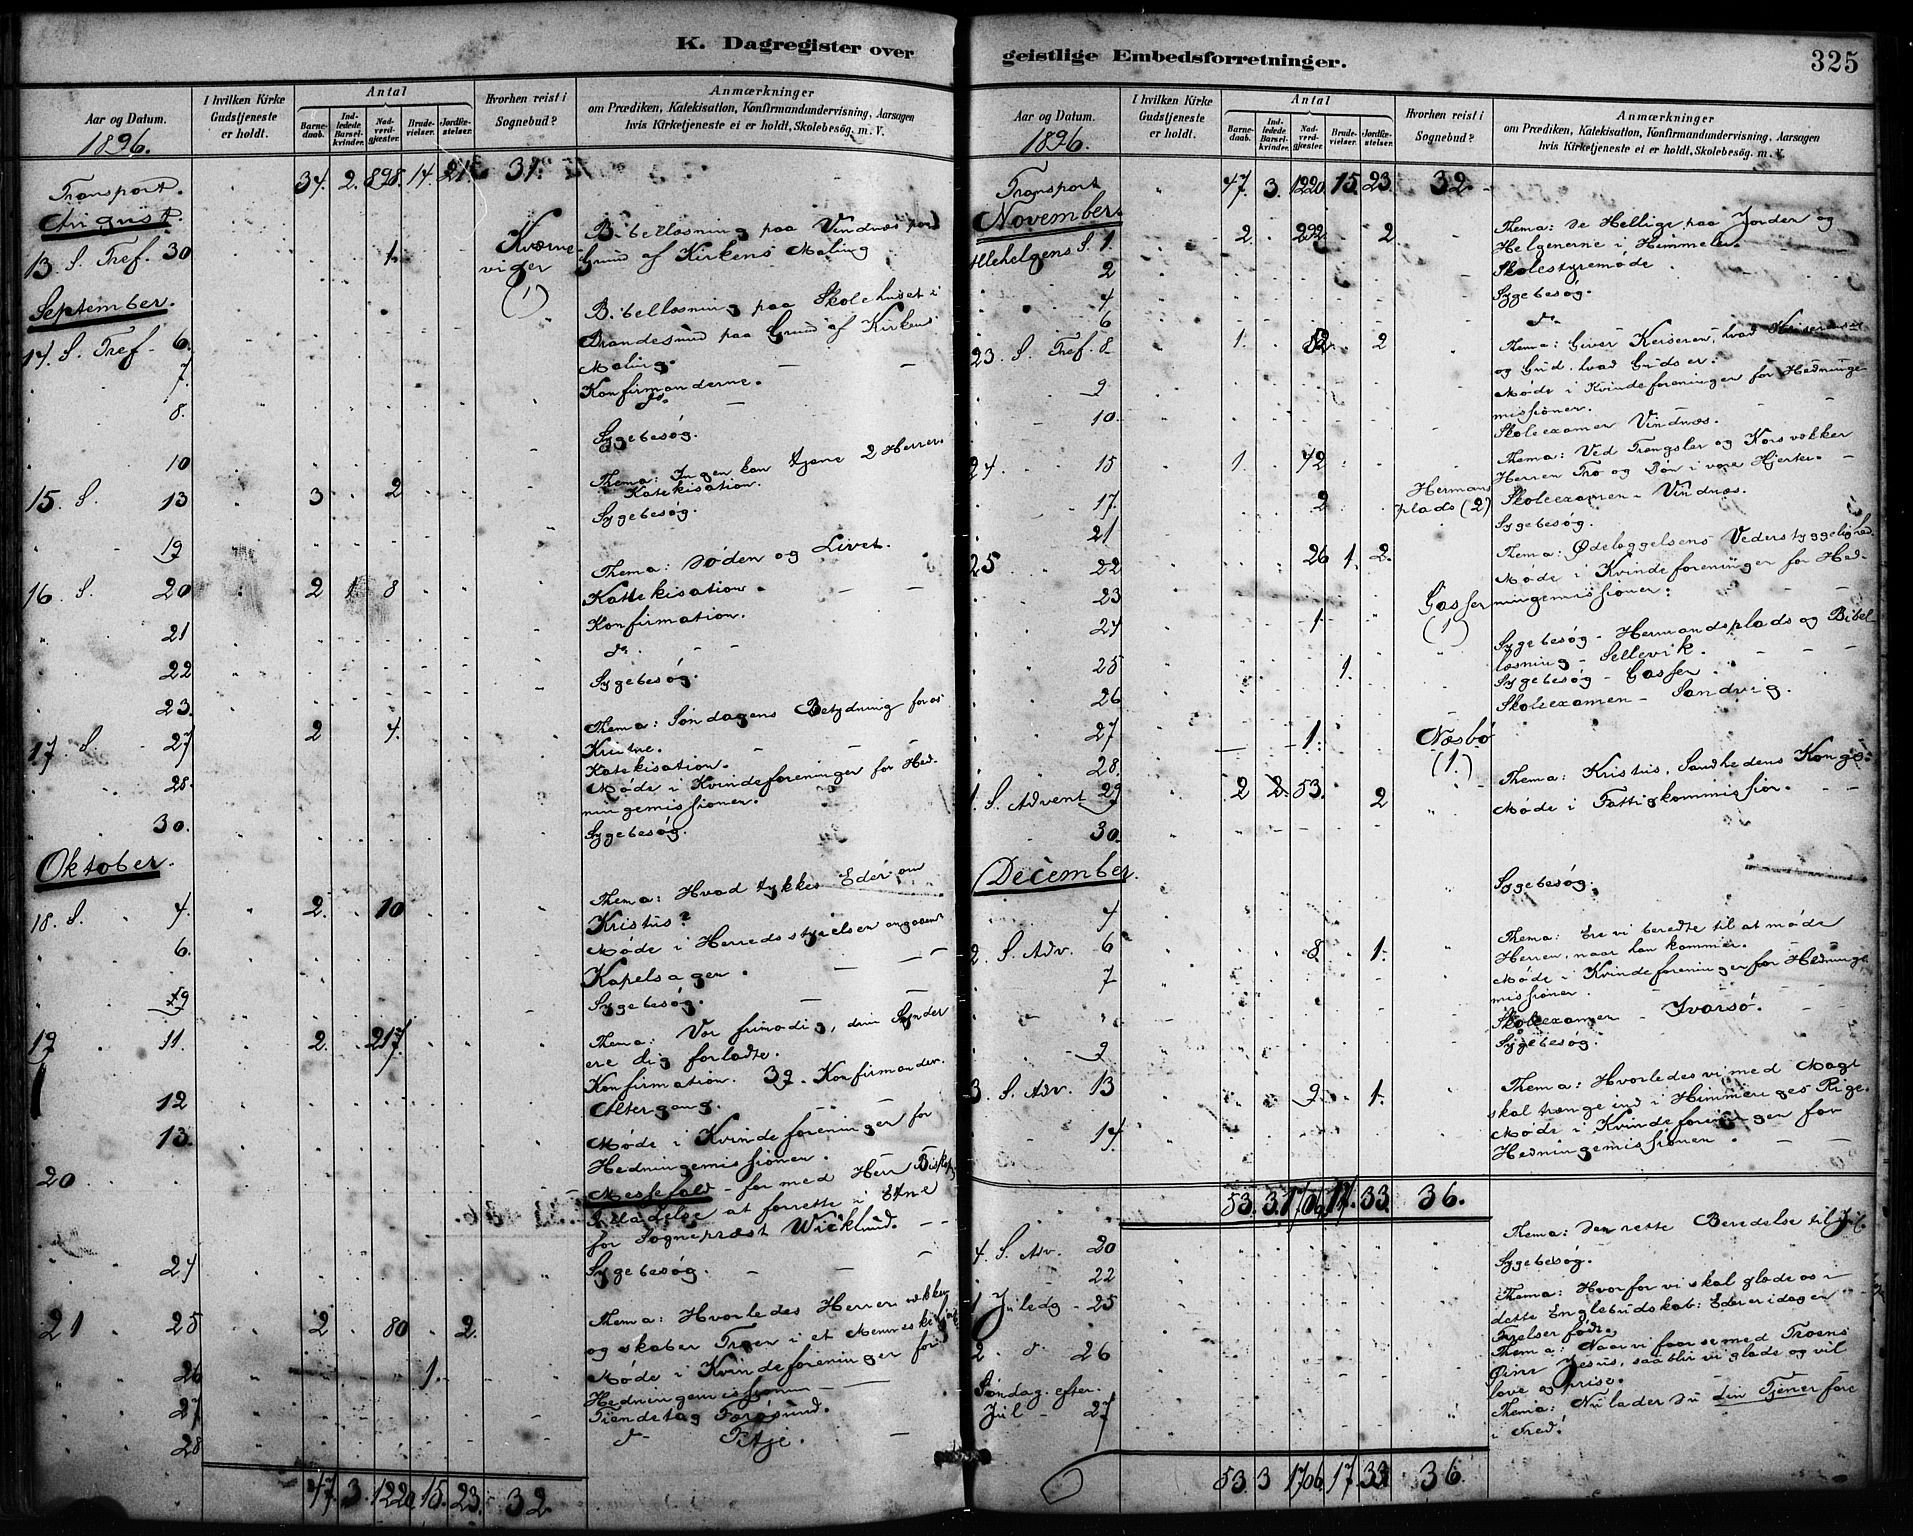 K. Dagregister over
Aar og Datum.
1896.
I hvilken Kirke Gudstjeneste er holdt.
Antal
Barnedaab.
Indledede Barselkvinder.
Nadverdgjæster.
Brudevielser.
Jordfæstelser.
Hvorhen reist i Sognebud?
Anmærkninger
om Prædiken, Katekisation, Konfirmandundervisning, Aarsagen
hvis Kirketjeneste ei er holdt, Skolebesøg, m. V.
Transport. 34. 2. 898. 14. 21. 31.
August.
13 S. Tref. 30 1. Kværne Bibellæsning paa Vindnæs paa
viger Grund af Kirkens Maling
(1)
September.
14. S. Tref. 6. Bibellæsning paa Skolehuset i
Brandesund paa Grund af Kirkens
Maling.
7. Konfirmanderne.
8. do.
10 Sygebesøg.
15. S. 13 3 2 Thema: Ingen kan tjene 2 Herrer.
Katekisation.
19 Sygebesøg.
16. S. 20 2 1 8 Thema: Døden og Livet.
Katekisation.
21 Konfirmation.
22 do.
23. Sygebesøg.
17 S. 27 2 4. Thema: Søndagens Betydning for os
Kristne.
Katekisation.
28. Møde i Kvindeforeninger for Hed-
ningemissioner.
30. Sygebesøg.
Oktober.
18. S. 4. 2. 10 Thema: Hvad tykkes Eder om
Kristus?
6. Møde i Herredsstyrelsen angaaende
Kapelsager.
9 Sygebesøg.
19 11. 2. 217. Thema: Vær frimodig, dine Synder
ere dig forladte.
Konfirmation. 32. Konfirmander.
12 Altergang.
13. Møde i Kvindeforeninger for
Hedningemissioner.
20 Messefald - for med Herr Biskop
Tilladelse at forrette i Etne
for Sognepræst Wicklund.
24 Sygebesøg.
21 25 2 80 2. Thema: Hvorledes Herren vækker
og skaber Troen i et Menneskehjerte
26 1. Møde i Kvindeforeninger for
Hedningemissionen
27 Tiendetag Færøsund.
28 do - Fitje.
47. 3. 1220. 15. 23. 32.
geistlige Embedsforretninger.
325
Aar og Datum.
1896.
I hvilken Kirke Gudstjeneste er holdt.
Antal
Barnedaab.
Indledede Barselkvinder.
Nadverdgjæster.
Brudevielser.
Jordfæstelser.
Hvorhen reist i Sognebud?
Anmærkninger
om Prædiken, Katekisation, Konfirmandundervisning, Aarsagen
hvis Kirketjeneste ei er holdt, Skolebesøg, m. V.
Transport 47. 3. 1220. 15. 23. 32.
November.
Allehelgens S. 1. 2. 292. 2 Thema: De Hellige paa Jorden og
Helgenerne i Himmelen.
2 Skolestyremøde.
4 Sygebesøg.
6 do.
23. S. Tref. 8 1. 82. 2 Thema: Giver Keiseren, hvad Keiserens er
og Gud, hvad Guds er.
9 Møde i Kvindeforeninger for Hedninge-
missioner.
10. Skoleexamen Vindnæs.
24. 15 1. 42 Thema: Ved Trængsler og Kors vækker
Herren Tro og Bøn i vore Hjerter.
17. 2 Hermans Skoleexamen - Vindnæs.
plads (2)
21 Sygebesøg.
25 22 26 1. 2. Thema: Ødelæggelsens Vederstyggelighed.
23 Møde i Kvindeforeninger for Hed-
ningemissioner.
24 1. Gasser
(1) Sygebesøg - Hermandsplads og Bibel
læsning - Sellevik.
25 1. Sygebesøg - Gasser.
26 Skoleexamen - Sandvig.
27 1. Næsbø
28. (1.)
1. S. Advent 29 2 2. 53. 2 Thema: Kristus, Sandhedens Konge.
30. Møde i Fattigkommission.
December.
4 Sygebesøg.
2. S. Adv. 6 8 1. Thema: Ere vi beredte til at møde
Herren, naar han kommer.
7 Møde i Kvindeforeninger for Hedninge-
missioner.
Skoleexamen - Ivarsø.
9 Sygebesøg.
3. S. Adv. 13 2 1. Thema: Hvorledes vi med Magt
skal trænge ind i Himmeriges Rige.
14. Møde i Kvindeforeninger for
Hedningemissioner.
53. 3. 1706 17. 33. 36.
4. S. Adv. 20 Thema: Den rette Beredelse til Jul.
22 Sygebesøg.
1 Juledg - 25 Thema: Hvorfor vi skal glæde os i
dette Englebudskab: Eder er i dag en
Frelser født.
2 d 26 Thema: Naar vi faar se med Troens
Øine Jesus, saa bliv vi glade og vil
love og prise.
Søndag efter
Jul - 27 Thema: Nu lader du din Tjener fare
i Fred!
53 3 1706 17 33 36.